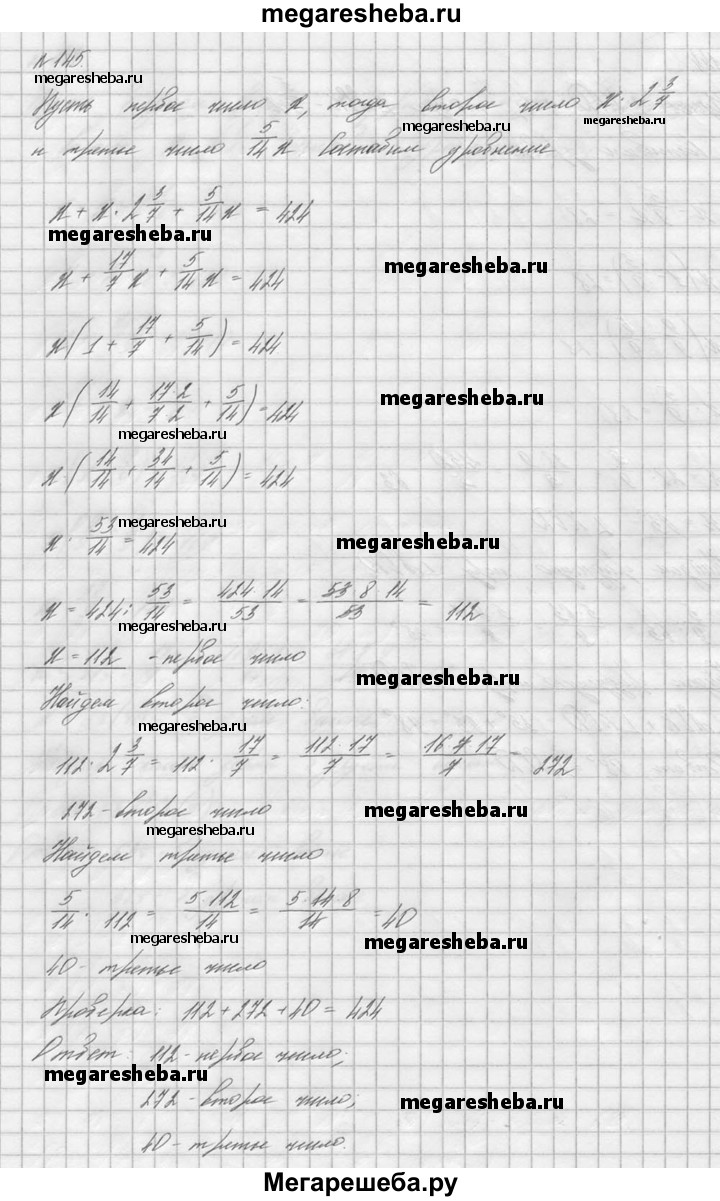 megaresheba.ru
№ 145.
megaresheba.ru
Пусть первое число x, тогда второе число x · 2 3/7
megaresheba.ru megaresheba.ru
и третье число 5/14 x Составим уровнение
x + x · 2 3/7 + 5/14 x = 424
megaresheba.ru
x + 17/7 x + 5/14 x = 424
megaresheba.ru
x (1 + 17/7 + 5/14) = 424
x (14/14 + 17·2/7·2 + 5/14) = 424
megaresheba.ru
megaresheba.ru
x (14/14 + 34/14 + 5/14) = 424
megaresheba.ru
x · 53/14 = 424
megaresheba.ru
x = 424 : 53/14 = 424·14/53 = 53·8·14/53 = 112
megaresheba.ru
x = 112 - первое число
megaresheba.ru
Найдем второе число:
megaresheba.ru
112 · 2 3/7 = 112 · 17/7 = 112·17/7 = 16·7·17/7 = 272
272 - второе число
megaresheba.ru
megaresheba.ru
Найдем третье число
5/14 · 112 = 5·112/14 = 5·14·8/14 = 40
megaresheba.ru
megaresheba.ru
40 - третье число
Проверка: 112 + 272 + 40 = 424
Ответ: 112 - первое число;
megaresheba.ru
272 - второе число;
megaresheba.ru
40 - третье число.
Мегарешеба.ру